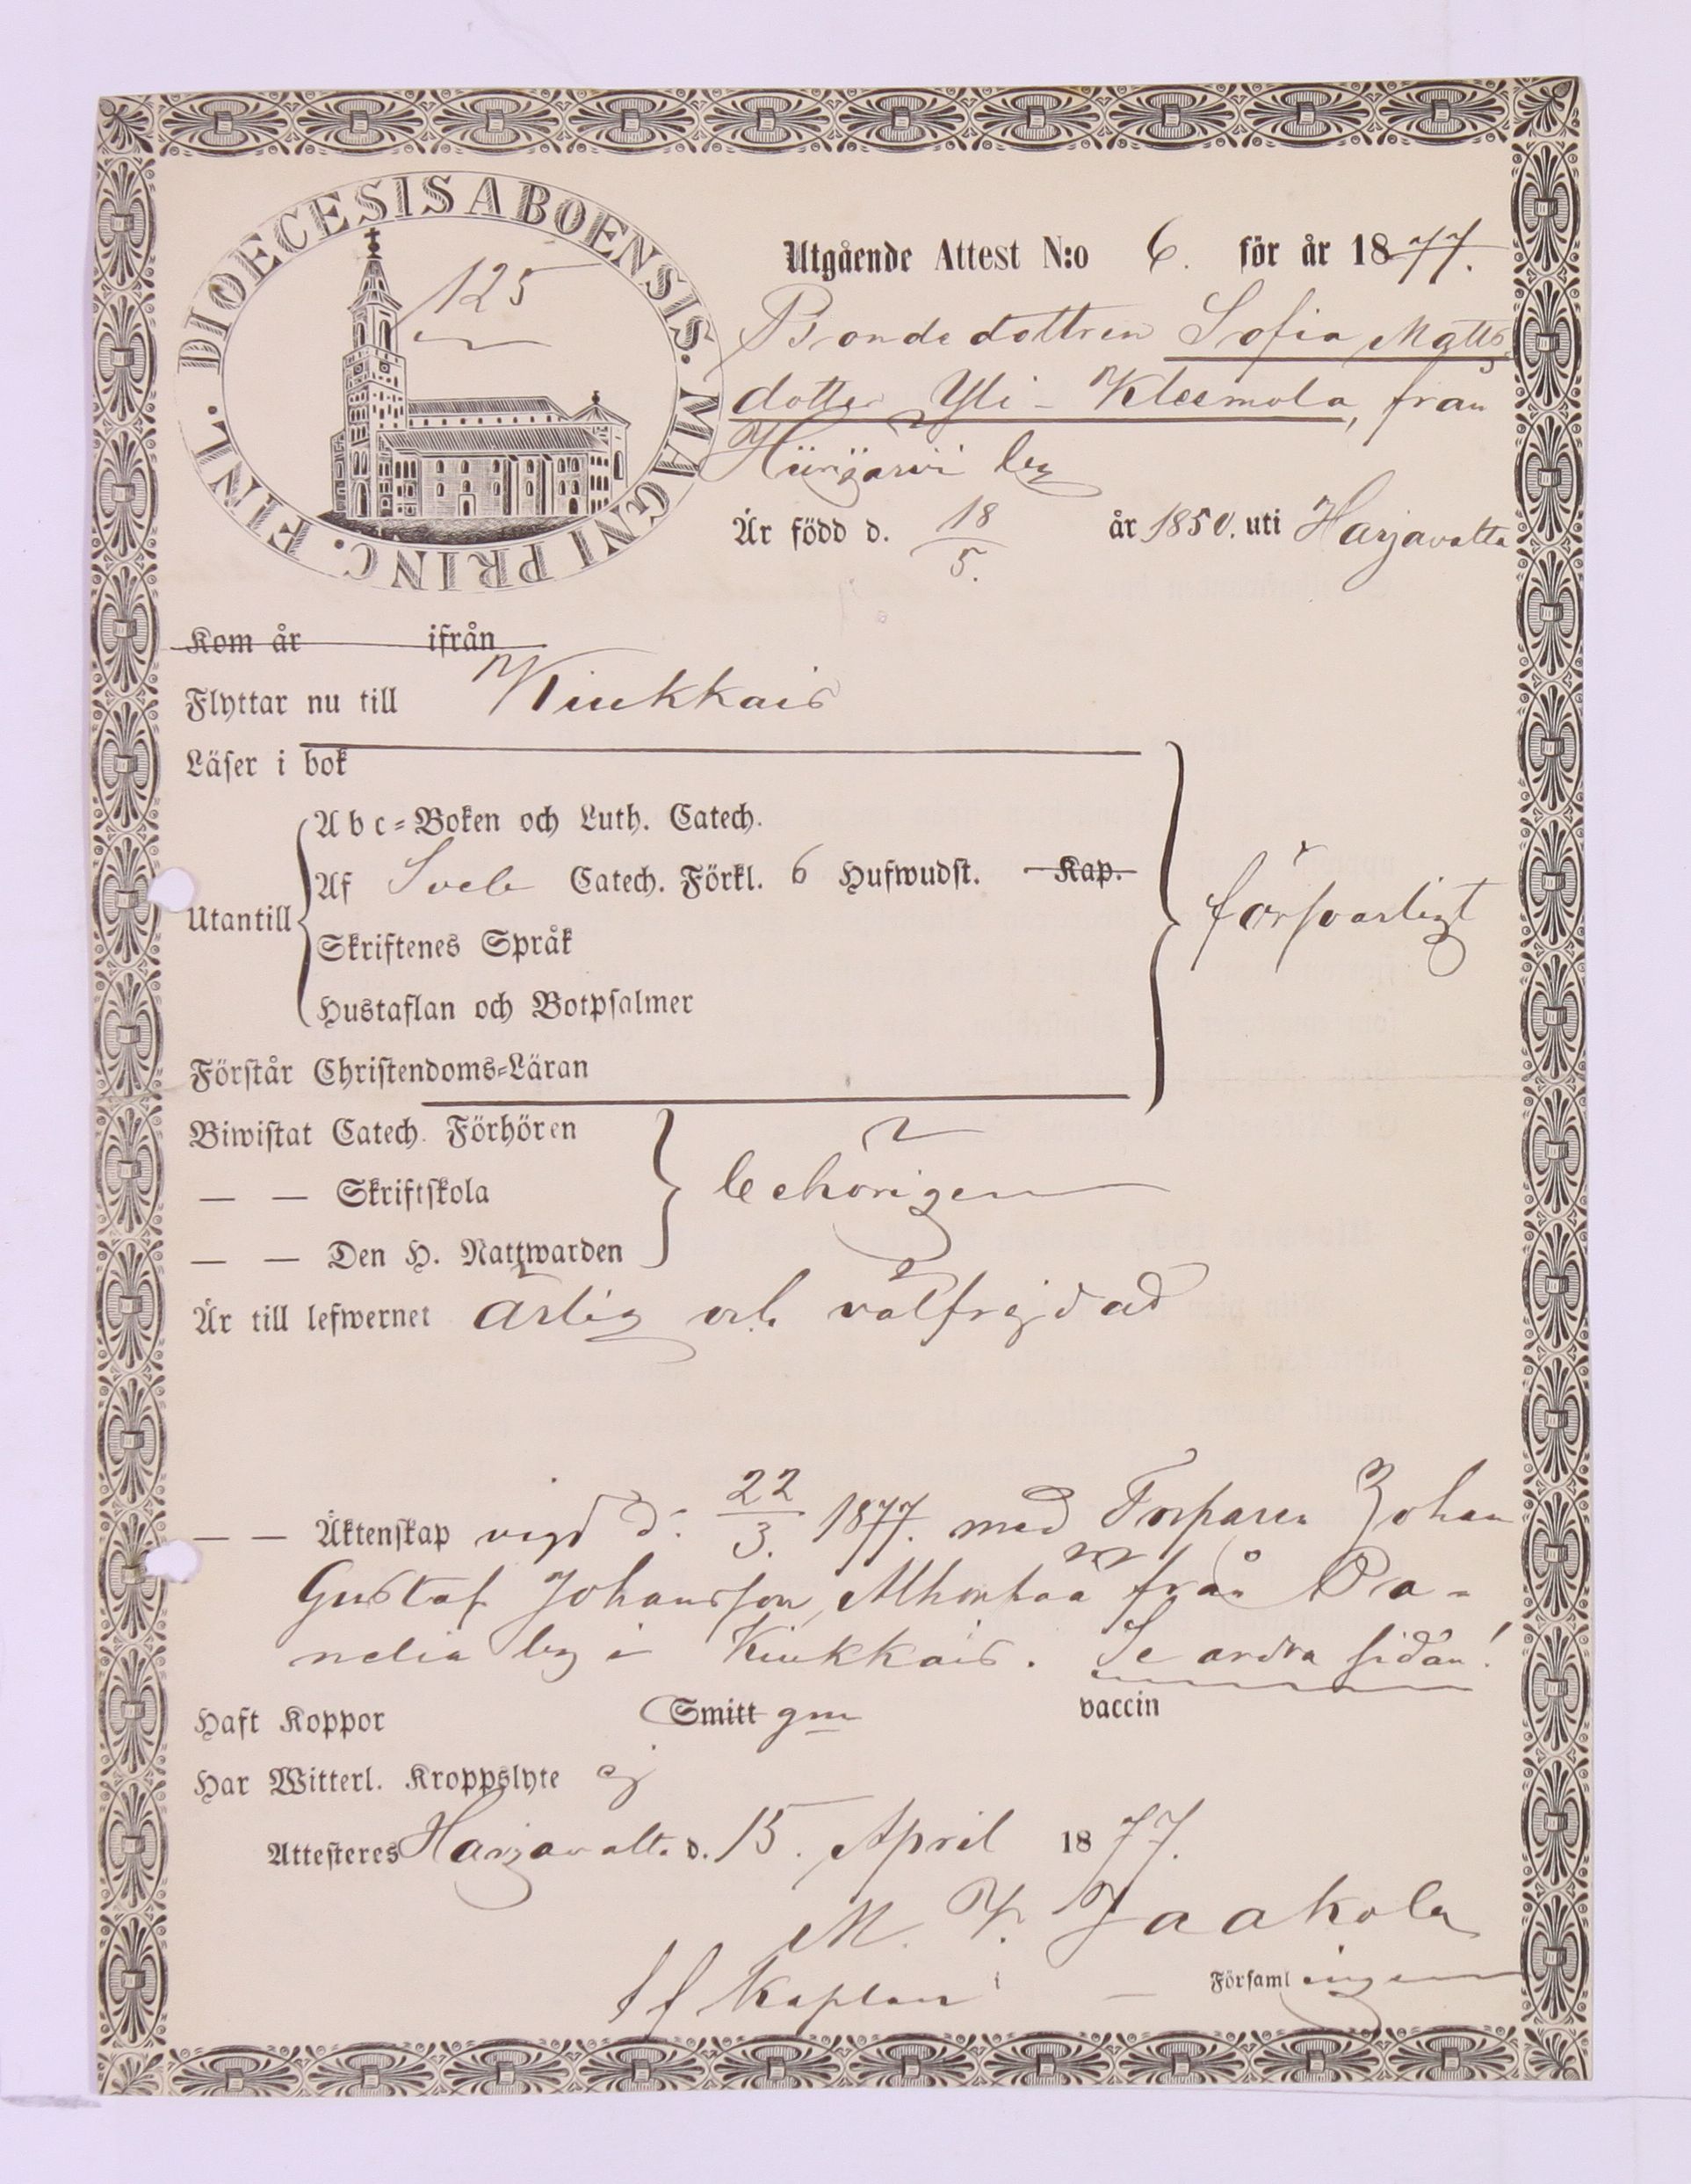 DIOECESIS ABOENSIS. MAGNI PRINC. FINL.
125
Utgående Attest N:o 6. för år 1877.
Bondedottren Sofia Matts
dotter Yli-Kleemola, från
Hiirijärvi by
Är född d. 18/5. år 1850. uti Harjavalta
Kom år ifrån
Flyttar nu till Kiukkais
Läser i bok
Abc-Boken och Luth. Catech.
Af Sveb Catech. Förkl. 6 Hufwudst. Kap.
Utantill
försvarligt
Skriftenes Språk
Hustaflan och Botpsalmer
Förstår Christendoms-Läran
Biwistat Catech. Förhören
— — Skriftskola behörigen
— — Den H. Nattwarden
Är till lefwernet ärlig och välfrejdad
— — Äktenskap vigd d. 22/3. 1877. med Torparen Johan
Gustaf Johansson Alhonpää från Pa-
nelia by i Kiukkais. Se andra sidan!
Haft Koppor Smitt gm vaccin
Har Witterl. Kroppslyte ej
Attesteres Harjavalta d. 15. April 1877.
M. V. Jaakola
tf Kaplan i Församlingen